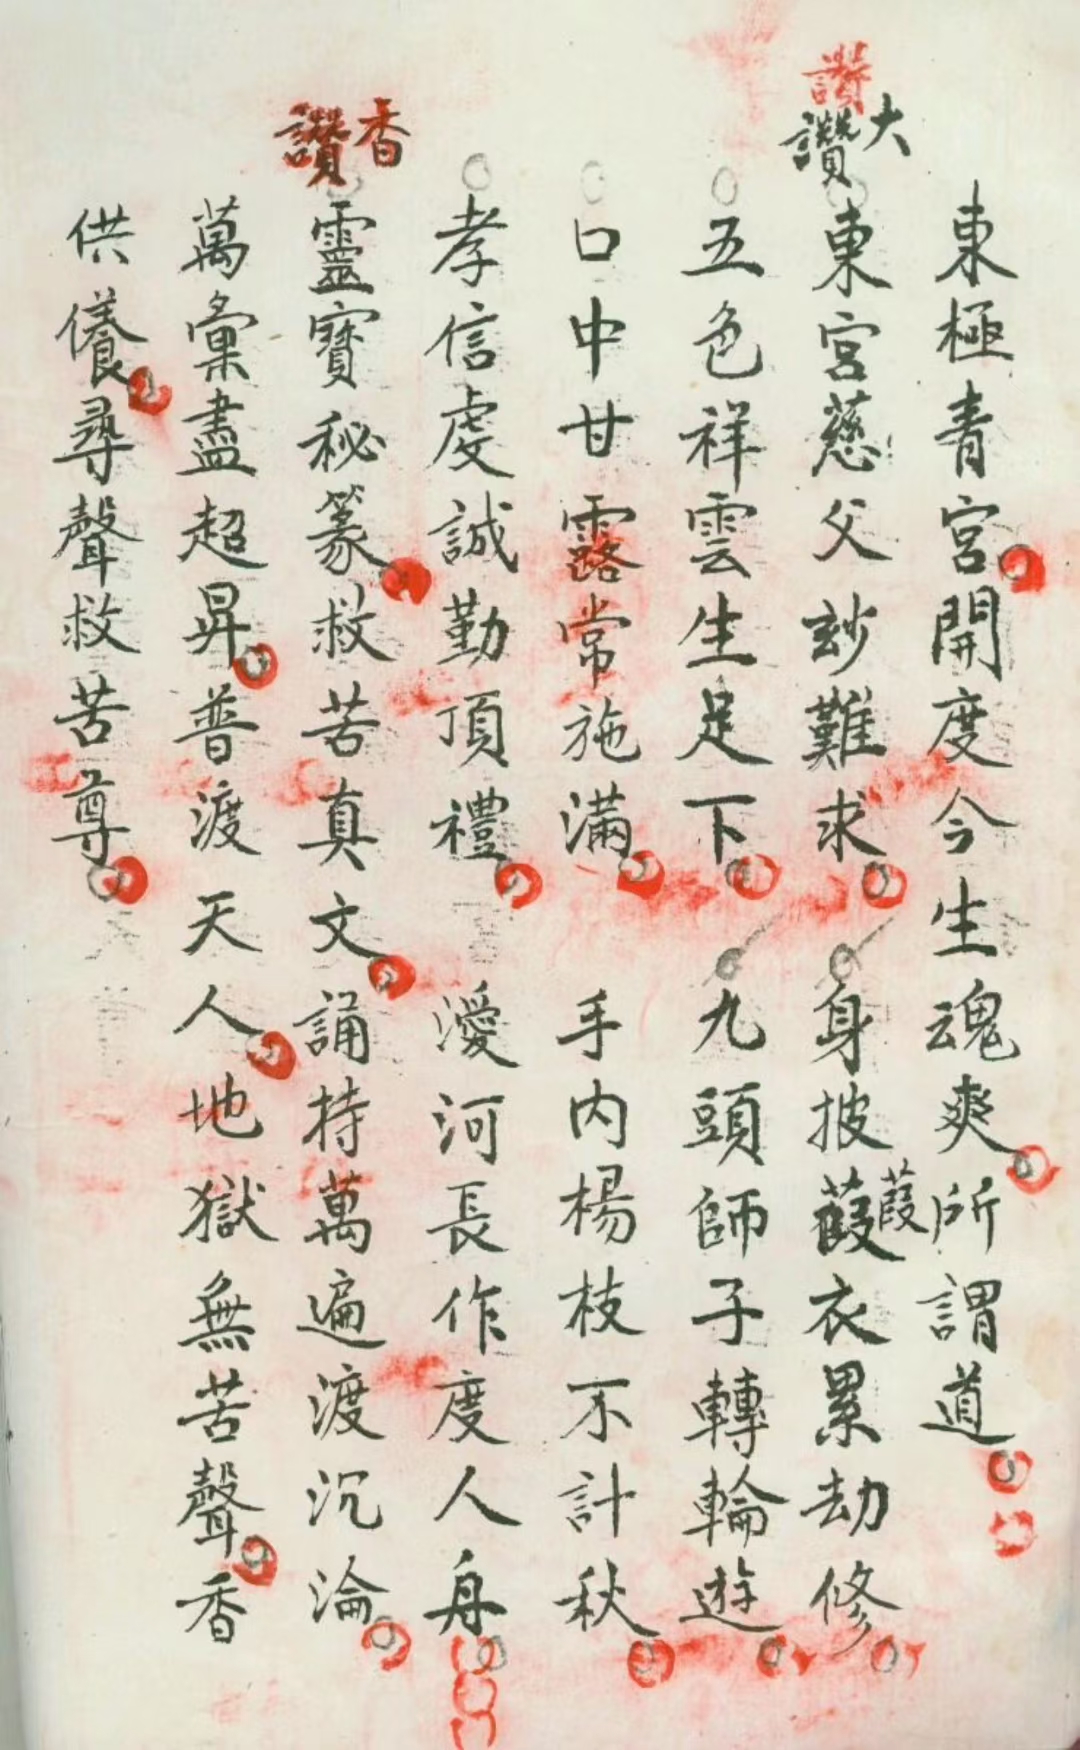 東極青宮開度今生魂爽所謂道
大讚
讚
東宮慈父玅難求 身披葭衣累劫修
葭
五色祥雲生足下 九頭師子轉輪遊
口中甘露常施滿 手內楊枝不計秋
孝信虔誠勤頂禮 濅河長作度人舟
香讚
靈寶秘篆救苦真文誦持萬遍渡沉淪
萬彙盡超昇普渡天人地獄無苦聲香
供儀尋聲救苦尊